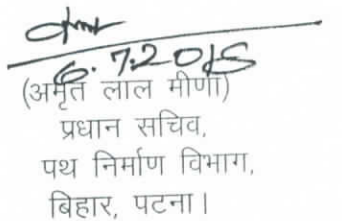 6.7.2015
(अमृत लाल मीणा)
प्रधान सचिव,
पथ निर्माण विभाग,
बिहार, पटना।